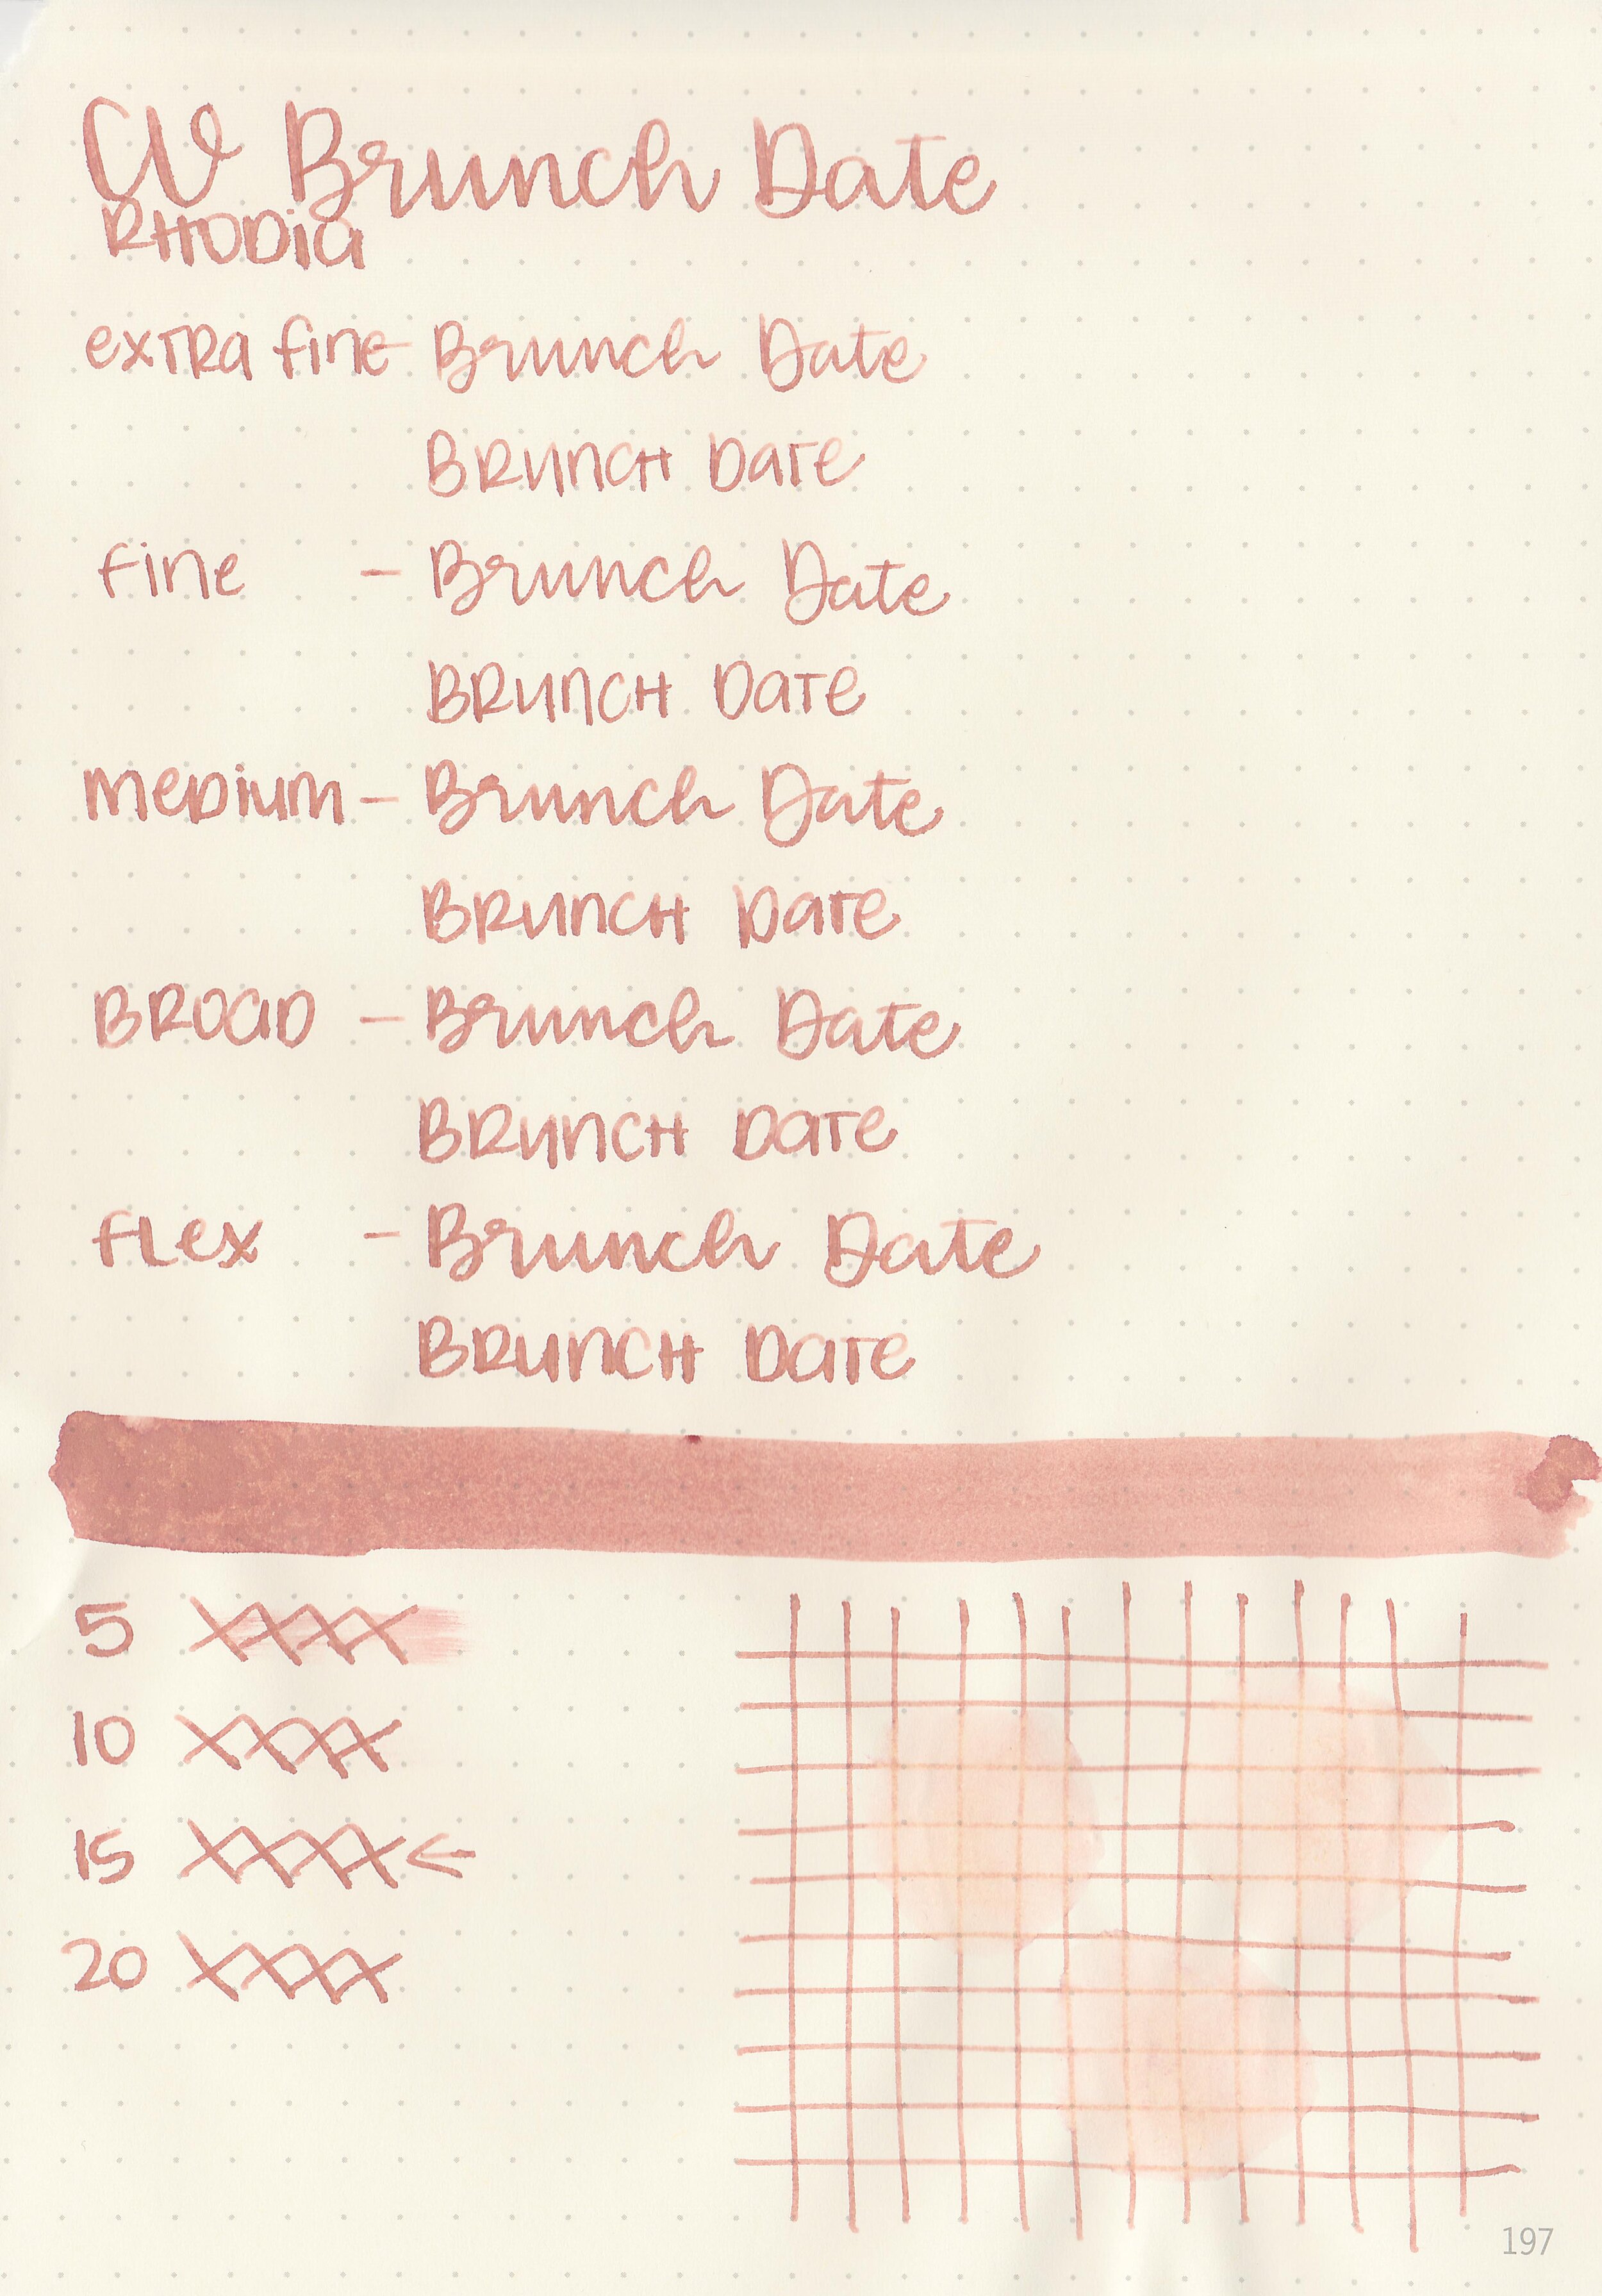 CV Brunch Date
RHODia
extra fine - Brunch Date
BRUnCH Date
fine - Brunch Date
BRUnCH Date
Medium - Brunch Date
BRUnCH Date
BROaD - Brunch Date
BRUnCH Date
flex - Brunch Date
BRUnCH Date
5 XXXX
10 XXXX
15 XXXX ←
20 XXXX
197